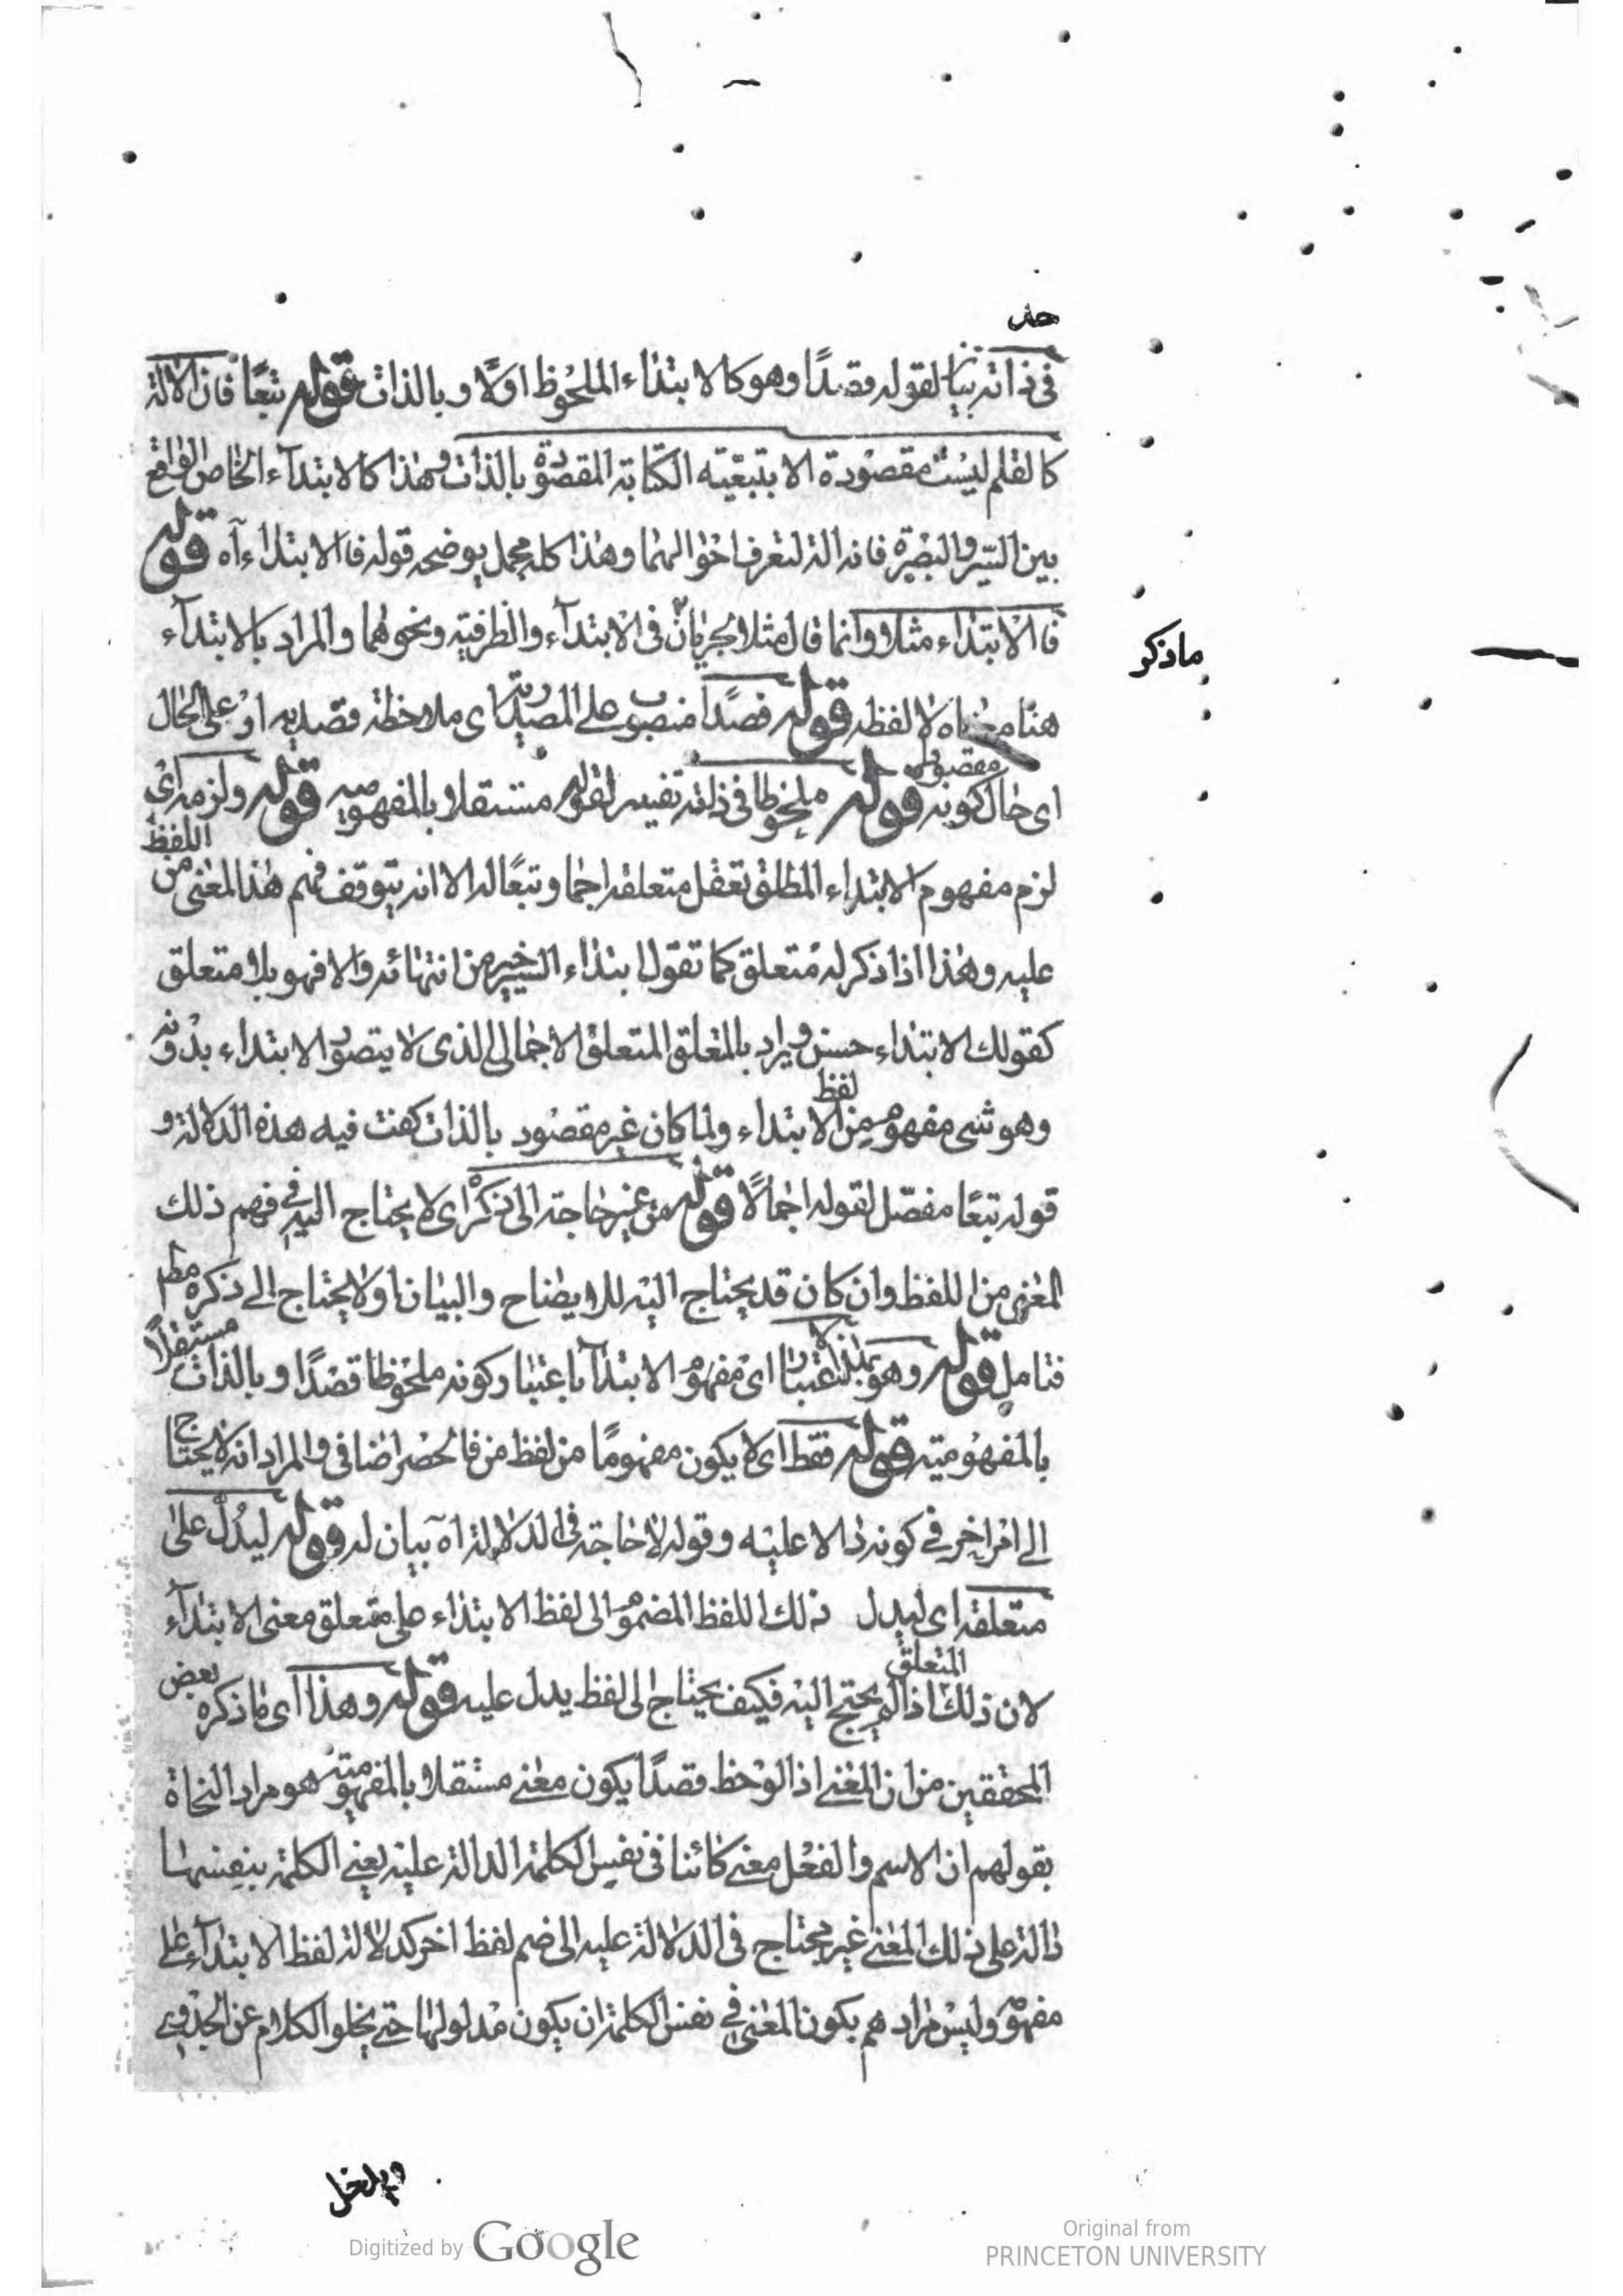 حد
في ذاته بيان لقوله قصدًا وهو كالابتداء الملحوظ اولًا وبالذات قوله تبعًا فان الآلة
كالقلم ليست مقصودة الا بتبعيته الكتابة المقصودة بالذات وهذا كالابتدآء الخاص الواقع
بين السير والبصرة فانه الة لتعرف احوالهما وهذا كله مجمل يوضحه قوله فالابتداء آه قوله
فالابتداء مثلا وانما قال مثلا لجريانه في الابتدآء والظرفية ونحوهما والمراد بالابتدآء
ماذكر
هنا معناه لا لفظه قوله قصدًا منصوب على المصدرية اى ملاحظة قصدية او على الحال
اى حال كونه مقصودا قوله ملحوظا في ذاته تفسير لقوله مستقلا بالمفهومية قوله ولزمه اى
لزم مفهوم الابتداء المطلق تعقل متعلقه اجمالا وتبعًا له الا انه يتوقف فهم هذا المعنى من اللفظ
عليه وهذا اذا ذكر له متعلق كما تقول ابتداء السير خير من انتهائه والا فهو بلا متعلق
كقولك الابتداء حسن ويراد بالمتعلق المتعلق الاجمالي الذى لا يتصور الابتداء بدونه
وهو شئ مفهوم من لفظ الابتداء ولما كان غير مقصود بالذات كفت فيه هذه الدلالة و
قوله تبعًا مفصّل لقوله اجمالًا قوله من غير حاجة الى ذكره اى لا يحتاج اليه في فهم ذلك
المعنى من اللفظ وان كان قد يحتاج اليه للايضاح والبيان او لا يحتاج الى ذكره مطم
فتامل قوله وهو بهذا الاعتبار اى مفهوم الابتدآ باعتبار كونه ملحوظا قصدًا وبالذات مستقلًا
بالمفهومية قوله فقط اى لا يكون مفهومًا من لفظ من فالحصر اضافى والمراد انه لا يحتاج
الى امر اخر في كونه دالا عليه وقوله لا حاجة في الدلالة آه بيان له قوله ليدل على
متعلقه اى ليدل ذلك اللفظ المضموم الى لفظ الابتداء على متعلق معنى الابتدآء
لان ذلك المتعلق اذا لم يحتج اليه فكيف يحتاج الى لفظ يدل عليه قوله وهذا اى ما ذكره بعض
المحققين من ان المعنى اذا لوحظ قصدًا يكون معنى مستقلا بالمفهومية هو مراد النحاة
بقولهم ان الاسم والفعل معنى كائنا في نفس الكلمة الدالة عليه يعنى الكلمة بنفسها
دالة على ذلك المعنى غير محتاج في الدلالة عليه الى ضم لفظ اخر كدلالة لفظ الابتدآء على
مفهومه وليس مرادهم بكون المعنى في نفس الكلمة ان يكون مدلولها حتى يخلو الكلام عن الجدوى
ويدخل
Digitized by Google
Original from
PRINCETON UNIVERSITY